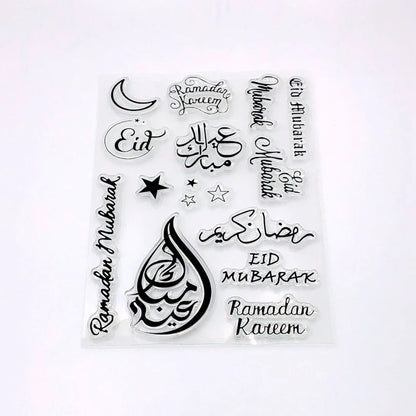 Ramadan
Kareem
Mubarak
Eid Mubarak
Eid
عيد
مبارك
Eid
Mubarak
Ramadan Mubarak
رمضان كريم
EID
MUBARAK
عيد مبارك
Ramadan
Kareem